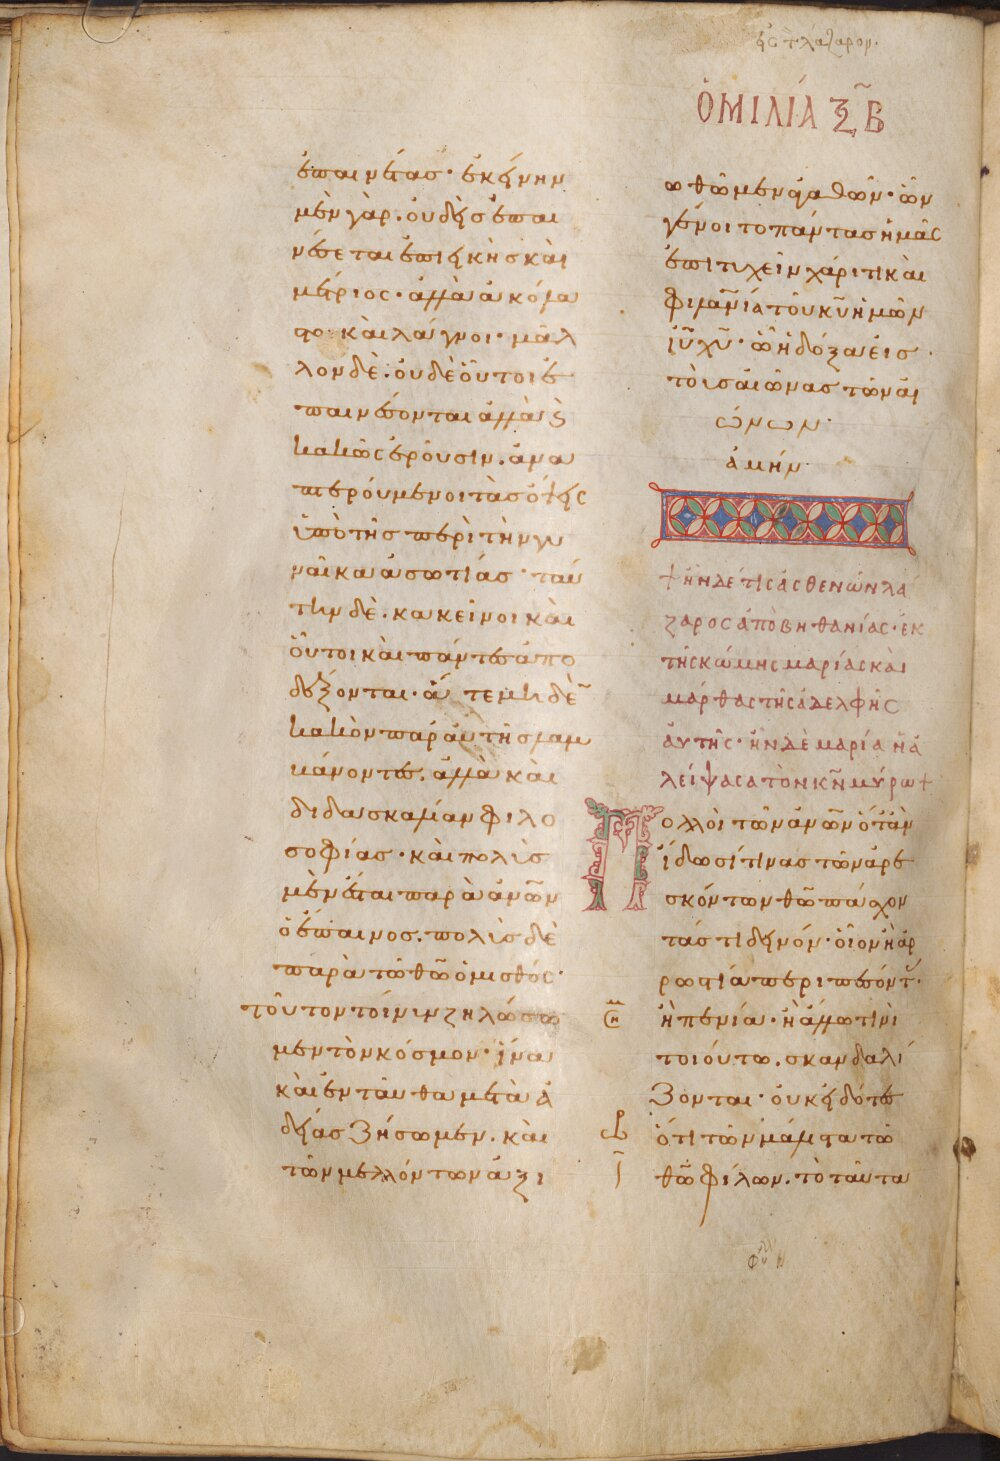 εἰς τ λάζαρον.
ὉΜΙΛΊΑ ΞΒ̃
ἐπαινέτας· ἐκείνην
μὲν γὰρ. οὐδεὶς ἐπαι
νέσεται ἐπιεικὴς καὶ
μέτριος· ἀλλὰ ἀκόλα
στοι καὶ λάγνοι· μᾶλ
λον δὲ. οὐδὲ οὗτοι ἐ
παινέσονται ἀλλὰ καὶ
κακῶς ἐροῦσιν. ἀνα
πτερούμενοι τὰς ὄψεις
ὑπὸ τῆς περὶ τὴν γυ
ναῖκα ἀσωτίας· ταύ
την δὲ. κακεῖνοι καὶ
οὗτοι καὶ πάντες ἀπο
δέξονται. ἅτε μηδὲν
κακὸν παρ' αὐτῆς λαμ
βάνοντες. ἀλλὰ καὶ
διδασκαλίαν φιλο
σοφίας· καὶ πολὺς
μὲν ἔσται παρὰ ἀνων
ὁ ἔπαινος. πολὺς δὲ
παρὰ τῶ θω ὁ μισθός·
τοῦτον τοίνυν ζηλώσω
μεν τὸν κόσμον· ἵνα
καὶ ἐνταῦθα μετὰ ἀ
δείας ζήσωμεν. καὶ
τῶν μελλόντων ἀξι
ωθῶμεν ἀγαθῶν· ὧν
γένοιτο πάντας ἡμᾶς
ἐπιτυχεῖν χάριτι καὶ
φιλανία τοῦ κυ ἡμῶν
ιυ χυ· ὧ ἡ δόξα εἰς
τοὺς αἰῶνας τῶν αἰ
ώνων·
ἀμήν·
+ ἦν δέ τις ἀσθενῶν λά
ζαρος ἀπὸ βηθανίας· ἐκ
τῆς κώμης μαρίας καὶ
μάρθας τῆς ἀδελφῆς
αὐτῆς· ἦν δὲ μαρία ἡ ἀ
λείψασα τὸν κν μύρω +
Πολλοὶ τῶν ἀνων ὅταν
ἴδωσί τινας τῶν ἀρε
σκόντων θω πάσχον
τάς τι δεινόν· οἷον ἢ ἀρ
ρωστία περιπεσόντ·
ἢ πενία· ἢ ἄλλω τινὶ
τοιούτω. σκανδαλί
ζονται· οὐκ εἰδότες
ὅτι τῶν μάλιστα τῶ
θω φίλων. τὸ ταῦτα